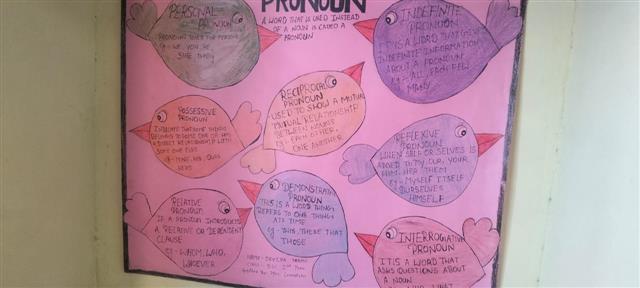 PRONOUN
A WORD THAT IS USED INSTEAD
OF A NOUN IS CALLED A
PRONOUN
PERSONAL
PRONOUN
PRONOUN USED FOR PERSONS
eg - WE, YOU, HE
SHE, THEY
INDEFINITE
PRONOUN
IT IS A WORD THAT GIVES
INDEFINITE INFORMATION
ABOUT A PRONOUN
eg - ALL, EACH, FEW
MANY
RECIPROCAL
PRONOUN
USED TO SHOW A MUTUAL
MUTUAL RELATIONSHIP
BETWEEN NOUNS
eg - EACH OTHER,
ONE ANOTHER
POSSESSIVE
PRONOUN
INDICATE THAT SOME THING
BELONGS TO SOME ONE OR HAS
A DIRECT RELATIONSHIP WITH
SOME ONE ELSE
eg - MINE, HIS, OURS
HERS
REFLEXIVE
PRONOUN
WHEN SELF OR SELVES IS
ADDED TO MY, OUR, YOUR
HIM, HER THEM
eg - MYSELF ITSELF
OURSELVES
HIMSELF
RELATIVE
PRONOUN
IF A PRONOUN INTRODUCES
A RELATIVE OR DEPENDENT
CLAUSE
eg - WHOM, WHO,
WHOEVER
DEMONSTRATIVE
PRONOUN
THIS IS A WORD THING
REFERS TO ONE THING
ATS TIME
eg - THIS, THESE THAT
THOSE
INTERROGATIVE
PRONOUN
IT IS A WORD THAT
ASKS QUESTIONS ABOUT
A NOUN
WHO, WHAT
NAME -
CLASS -